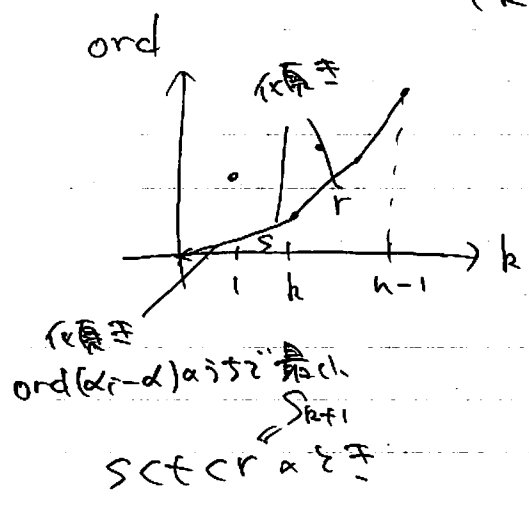 ord
傾き
r
s
1 k n-1 k
傾き
ord(αᵢ-α)のうちで最小
S_{k+1}
s<t<r のとき